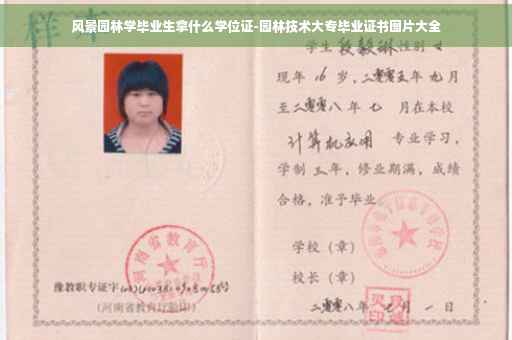 风景园林学毕业生拿什么学位证-园林技术大专毕业证书图片大全
样本
学生 段毅琳 性别 女
现年 16 岁,二零零五年 九月
至二零零八年 七 月在本校
计算机应用 专业学习,
学制 三 年,修业期满,成绩
合格,准予毕业
学校(章)
河南省教育厅
豫教职专证字
校长(章)
(河南省教育厅验印)
二零零八年 七 月 一 日